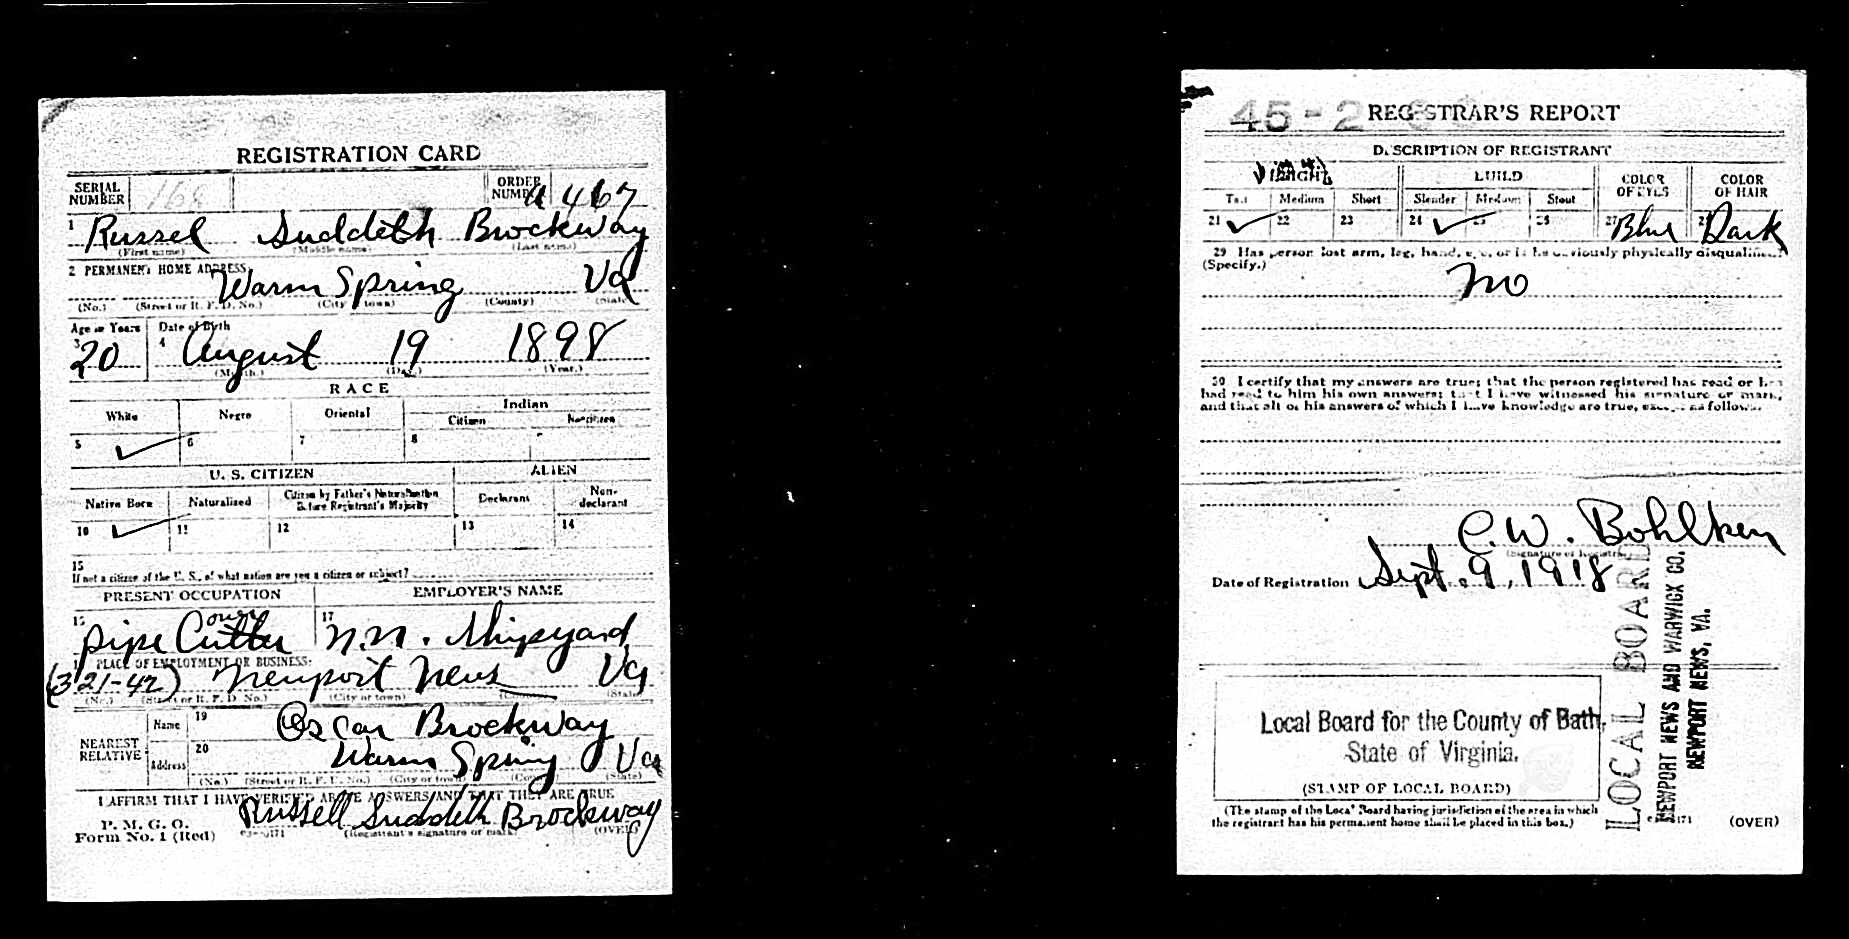 REGISTRATION CARD
SERIAL NUMBER 168 ORDER NUMBER A 467
1 Russel Suddeth Brockway
(First name) (Middle name) (Last name)
2 PERMANENT HOME ADDRESS:
Warm Spring Va
(No.) (Street or R. F. D. No.) (City or town) (County) (State)
Age in Years Date of Birth
3 20 4 August 19 1898
(Month.) (Day.) (Year.)
RACE
White Negro Oriental Indian
Citizen Noncitizen
5 ✓ 6 7 8
U. S. CITIZEN ALIEN
Native Born Naturalized Citizen by Father's Naturalization Before Registrant's Majority Declarant Non-declarant
10 ✓ 11 12 13 14
15
If not a citizen of the U. S., of what nation are you a citizen or subject?
PRESENT OCCUPATION EMPLOYER'S NAME
16 Pipe Cutter 17 N.N. Shipyard
PLACE OF EMPLOYMENT OR BUSINESS:
(321-42) Newport News Va
(No.) (Street or R. F. D. No.) (City or town) (County) (State)
NEAREST RELATIVE
Name 19 Oscar Brockway
Address 20 Warm Spring Va
(No.) (Street or R. F. D. No.) (City or town) (County) (State)
I AFFIRM THAT I HAVE VERIFIED ABOVE ANSWERS AND THAT THEY ARE TRUE
P. M. G. O.
Form No. 1 (Red) Russell Suddeth Brockway
(Registrant's signature or mark) (OVER)
45-2
REGISTRAR'S REPORT
DESCRIPTION OF REGISTRANT
HEIGHT BUILD COLOR OF EYES COLOR OF HAIR
Tall Medium Short Slender Medium Stout
21 ✓ 22 23 24 ✓ 25 26 27 Blue 28 Dark
29 Has person lost arm, leg, hand, eye, or is he obviously physically disqualified?
(Specify.)
No
30 I certify that my answers are true; that the person registered has read or has
had read to him his own answers; that I have witnessed his signature or mark,
and that all of his answers of which I have knowledge are true, except as follows:
C.W. Bohlken
(Signature of Registrar)
Date of Registration Sept. 9, 1918
Local Board for the County of Bath,
State of Virginia.
(STAMP OF LOCAL BOARD)
(The stamp of the Local Board having jurisdiction of the area in which
the registrant has his permanent home shall be placed in this box.)
(OVER)
LOCAL BOARD
NEWPORT NEWS AND WARWICK CO.
NEWPORT NEWS, VA.